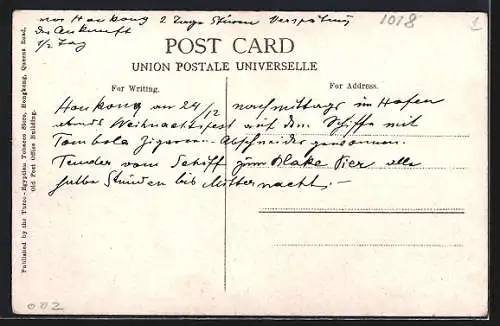 vor Honkong 2 Tage Sturm Verspätung
der Ankunft
1/2 Tag
1018
1
POST CARD
UNION POSTALE UNIVERSELLE
For Writing.
For Address.
Honkong am 24/12 nachmittags im Hafen
abends Weihnachtsfest auf dem Schiffe mit
Tombola Zigarren-Abschneider gewonnen.
Tender vom Schiff zum Blake Pier alle
halbe Stunden bis Mitternacht.—
Published by the Turco-Egyptian Tobacco Store, Hongkong, Queens Road,
Old Post Office Building.
002